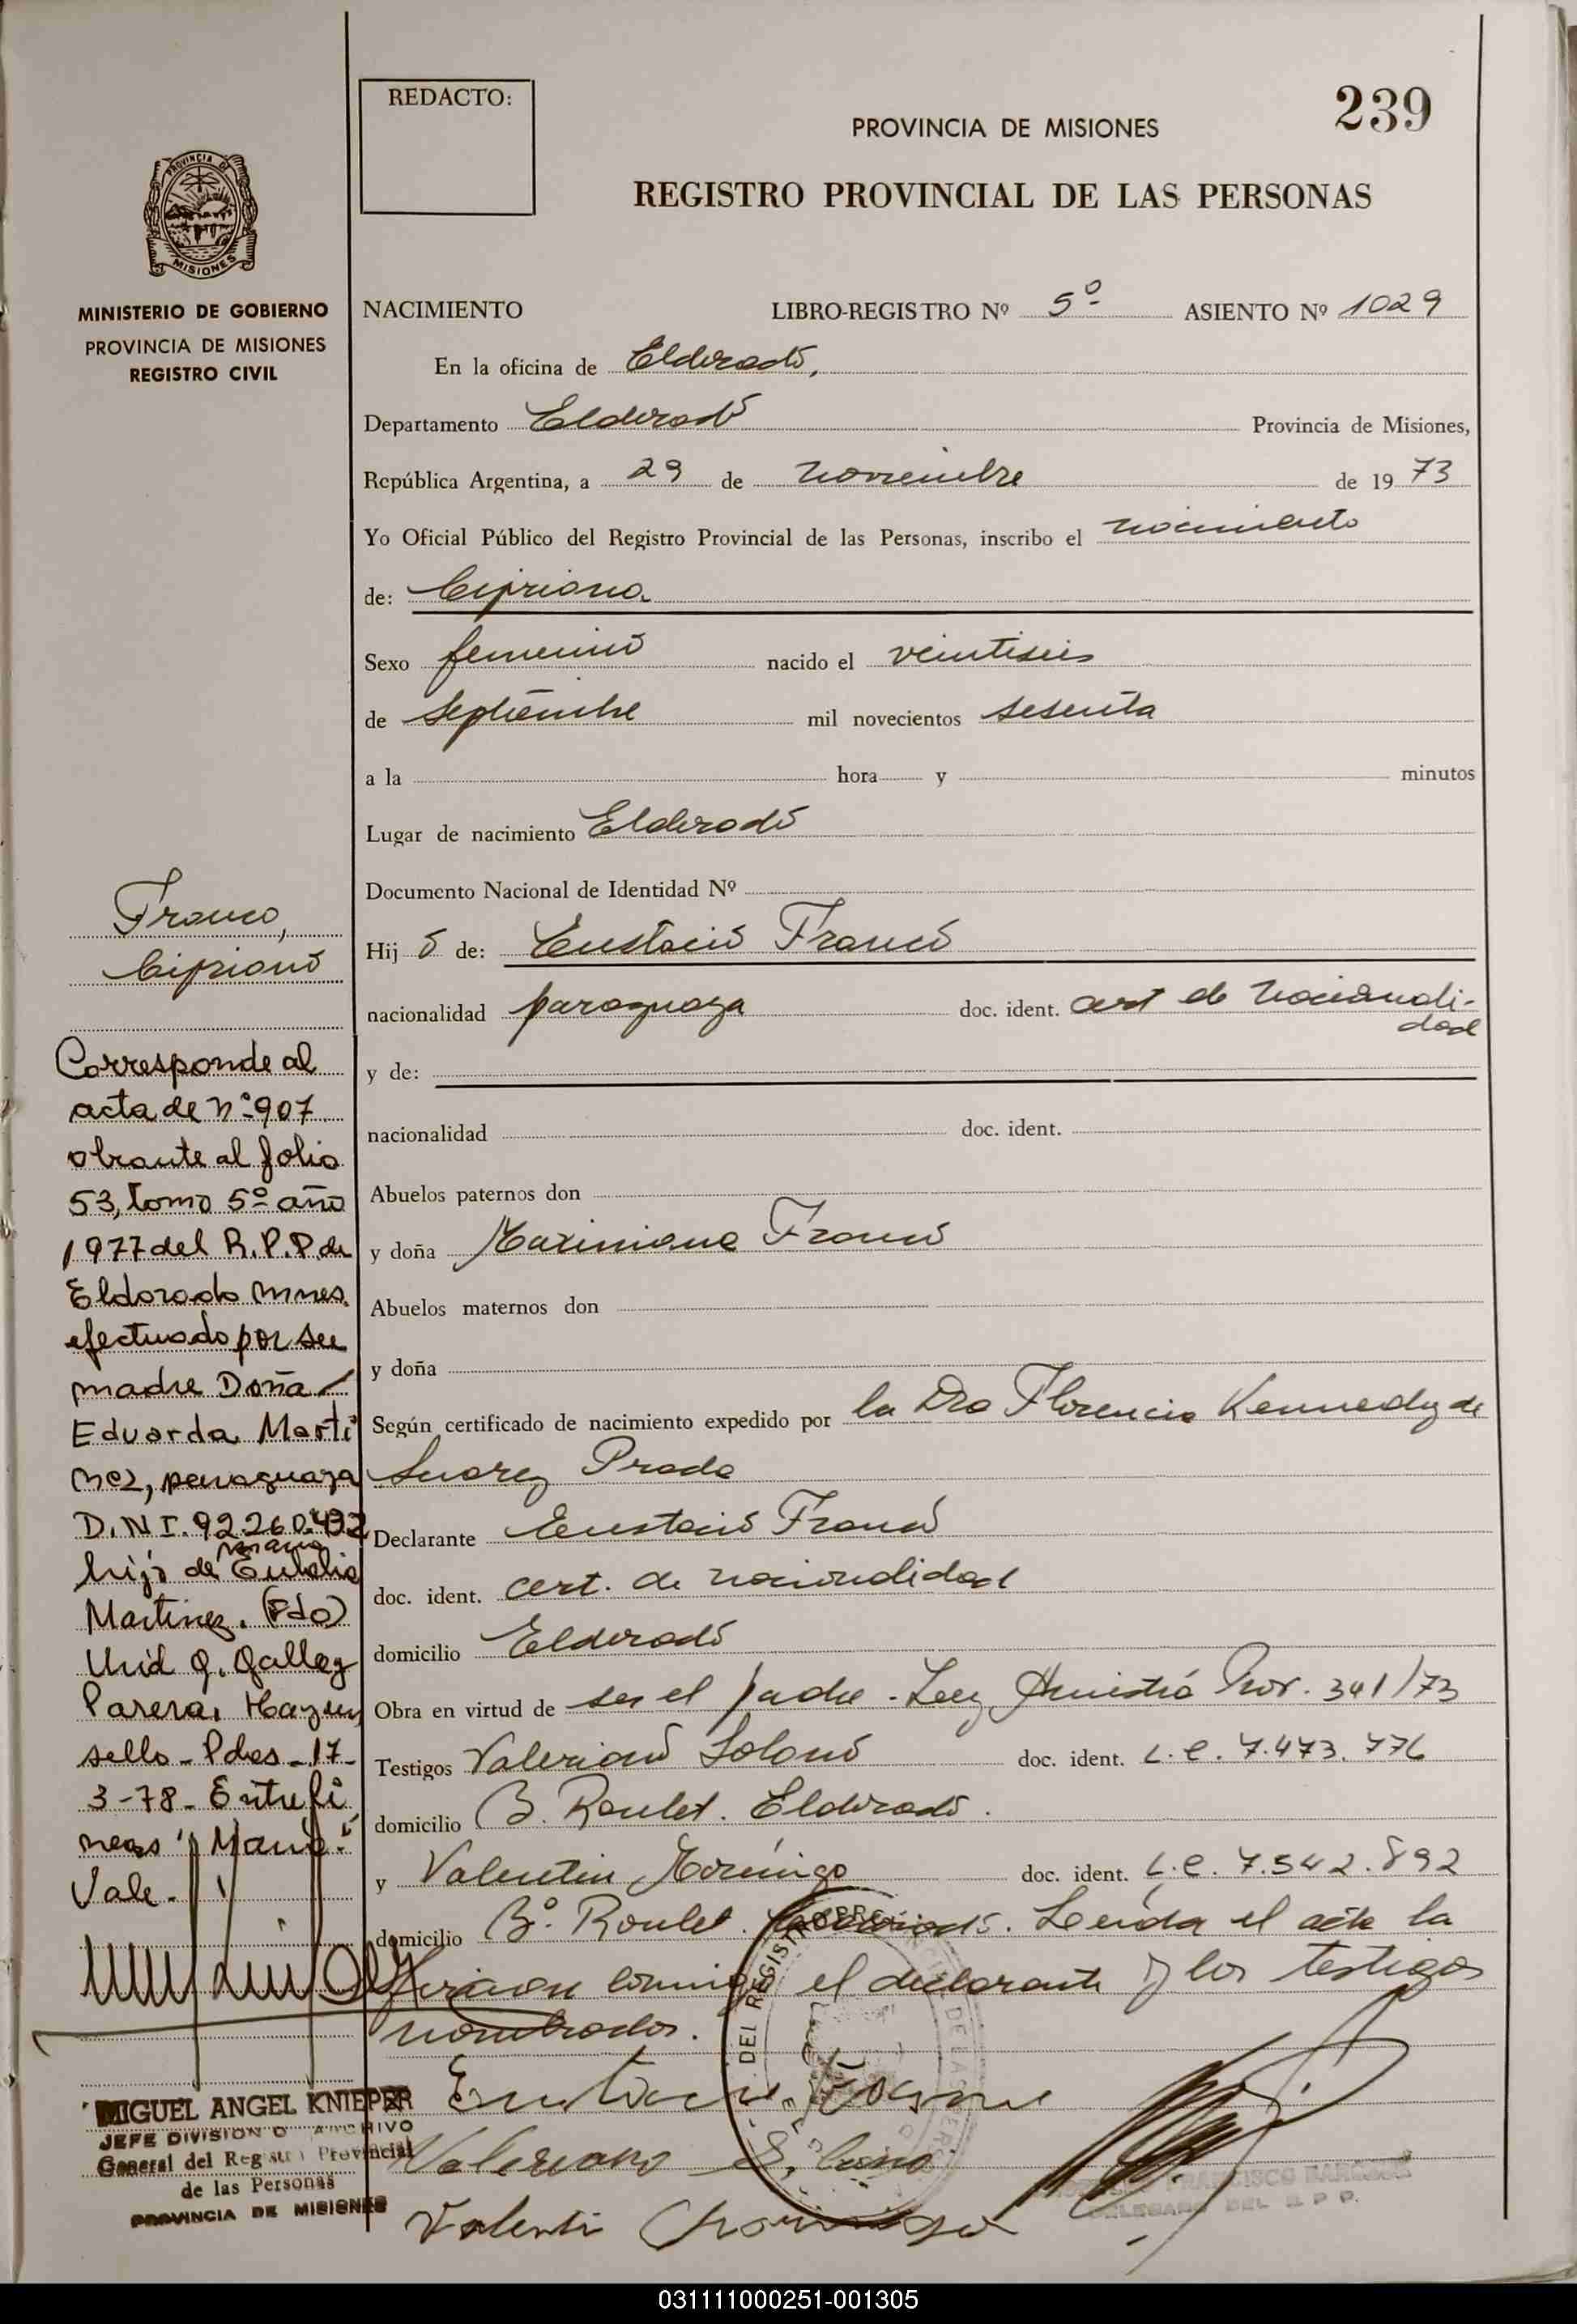 REDACTO:
239
PROVINCIA DE MISIONES
REGISTRO PROVINCIAL DE LAS PERSONAS
PROVINCIA DE
MISIONES
MINISTERIO DE GOBIERNO
PROVINCIA DE MISIONES
REGISTRO CIVIL
NACIMIENTO LIBRO-REGISTRO Nº 5º ASIENTO Nº 1029
En la oficina de Eldorado,
Departamento Eldorado Provincia de Misiones,
República Argentina, a 29 de noviembre de 1973
Yo Oficial Público del Registro Provincial de las Personas, inscribo el nacimiento
de: Cipriana
Sexo femenino nacido el veintiseis
de septiembre mil novecientos sesenta
a la hora y minutos
Lugar de nacimiento Eldorado
Documento Nacional de Identidad Nº
Hijo de: Eustacio Franco
nacionalidad paraguaya doc. ident. cert de nacionali-
dad
y de:
nacionalidad doc. ident.
Abuelos paternos don
y doña Maximiana Franco
Abuelos maternos don
y doña
Según certificado de nacimiento expedido por la Dra Florencia Kennedy de
Suarez Prada
Declarante Eustacio Franco
doc. ident. cert. de nacionalidad
domicilio Eldorado
Obra en virtud de ser el padre - Ley Amnistía Prov. 341/73
Testigos Valeriano Solano doc. ident. L.E. 7.473.776
domicilio B. Roulet. Eldorado.
y Valentin Domingo doc. ident. L.E. 7.542.892
domicilio Bº. Roulet. Eldorado. Leída el acta la
firman conmigo el declarante y los testigos
nombrados.
Franco,
Cipriano
Corresponde al
acta de nº 907
obrante al folio
53, tomo 5º año
1977 del R.P.P. de
Eldorado Mnes.
efectuado por su
madre Doña
Eduarda Marti
nez, paraguaya
D.N.I. 92.260.432
maria
hija de Eulalia
Martinez. (Fdo)
Parera,
sello - Pdas - 17-
3-78 - Entreli
neas "Maria"
Vale.
MIGUEL ANGEL KNIEPER
JEFE DIVISION ARCHIVO
General del Registro Provincial
de las Personas
PROVINCIA DE MISIONES
DEL REGISTRO
Valeriano Solano
FRANCISCO
DELEGADO DEL R P P.
031111000251-001305